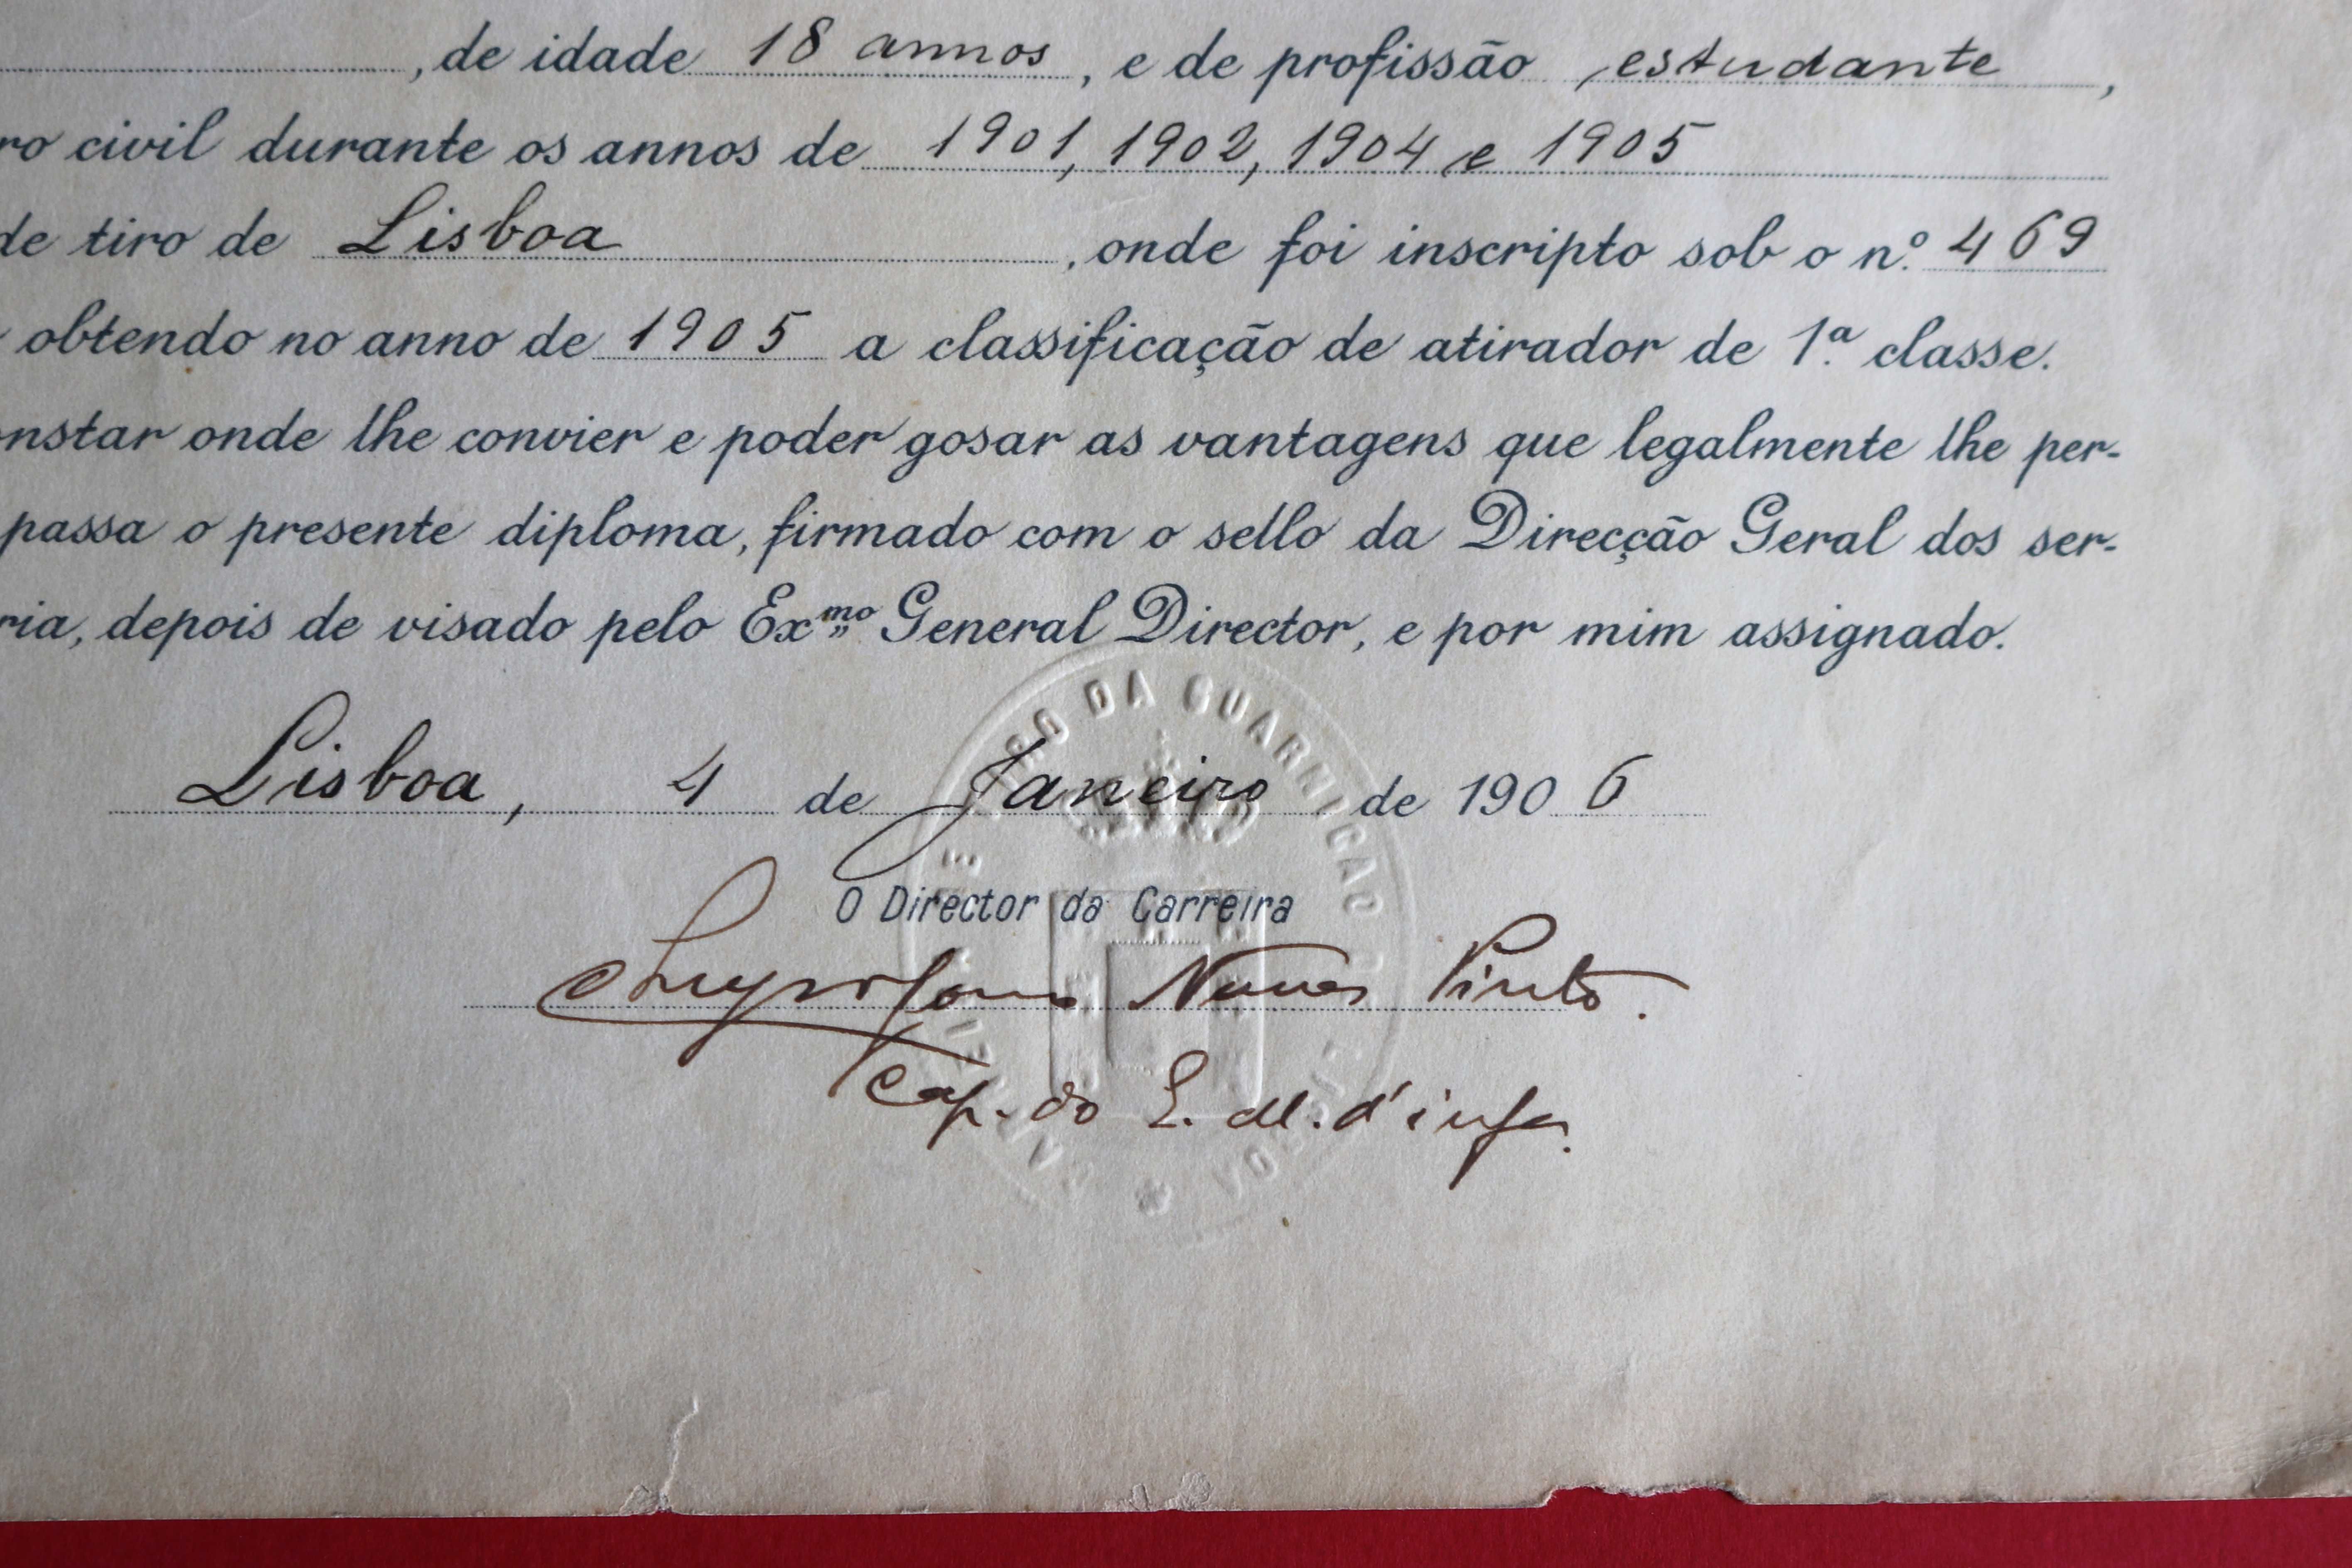 , de idade 18 annos, e de profissão estudante,
ro civil durante os annos de 1901, 1902, 1904 e 1905
de tiro de Lisboa, onde foi inscripto sob o n.º 469
obtendo no anno de 1905 a classificação de atirador de 1.ª classe.
nstar onde lhe convier e poder gosar as vantagens que legalmente lhe per-
passa o presente diploma, firmado com o sello da Direcção Geral dos ser-
ria, depois de visado pelo Exmo General Director, e por mim assignado.
DA GUARNIÇÃO
Lisboa, 4 de Janeiro de 1906
O Director da Carreira
Nunes Pinto.
Cap. do E. M. d'infa.